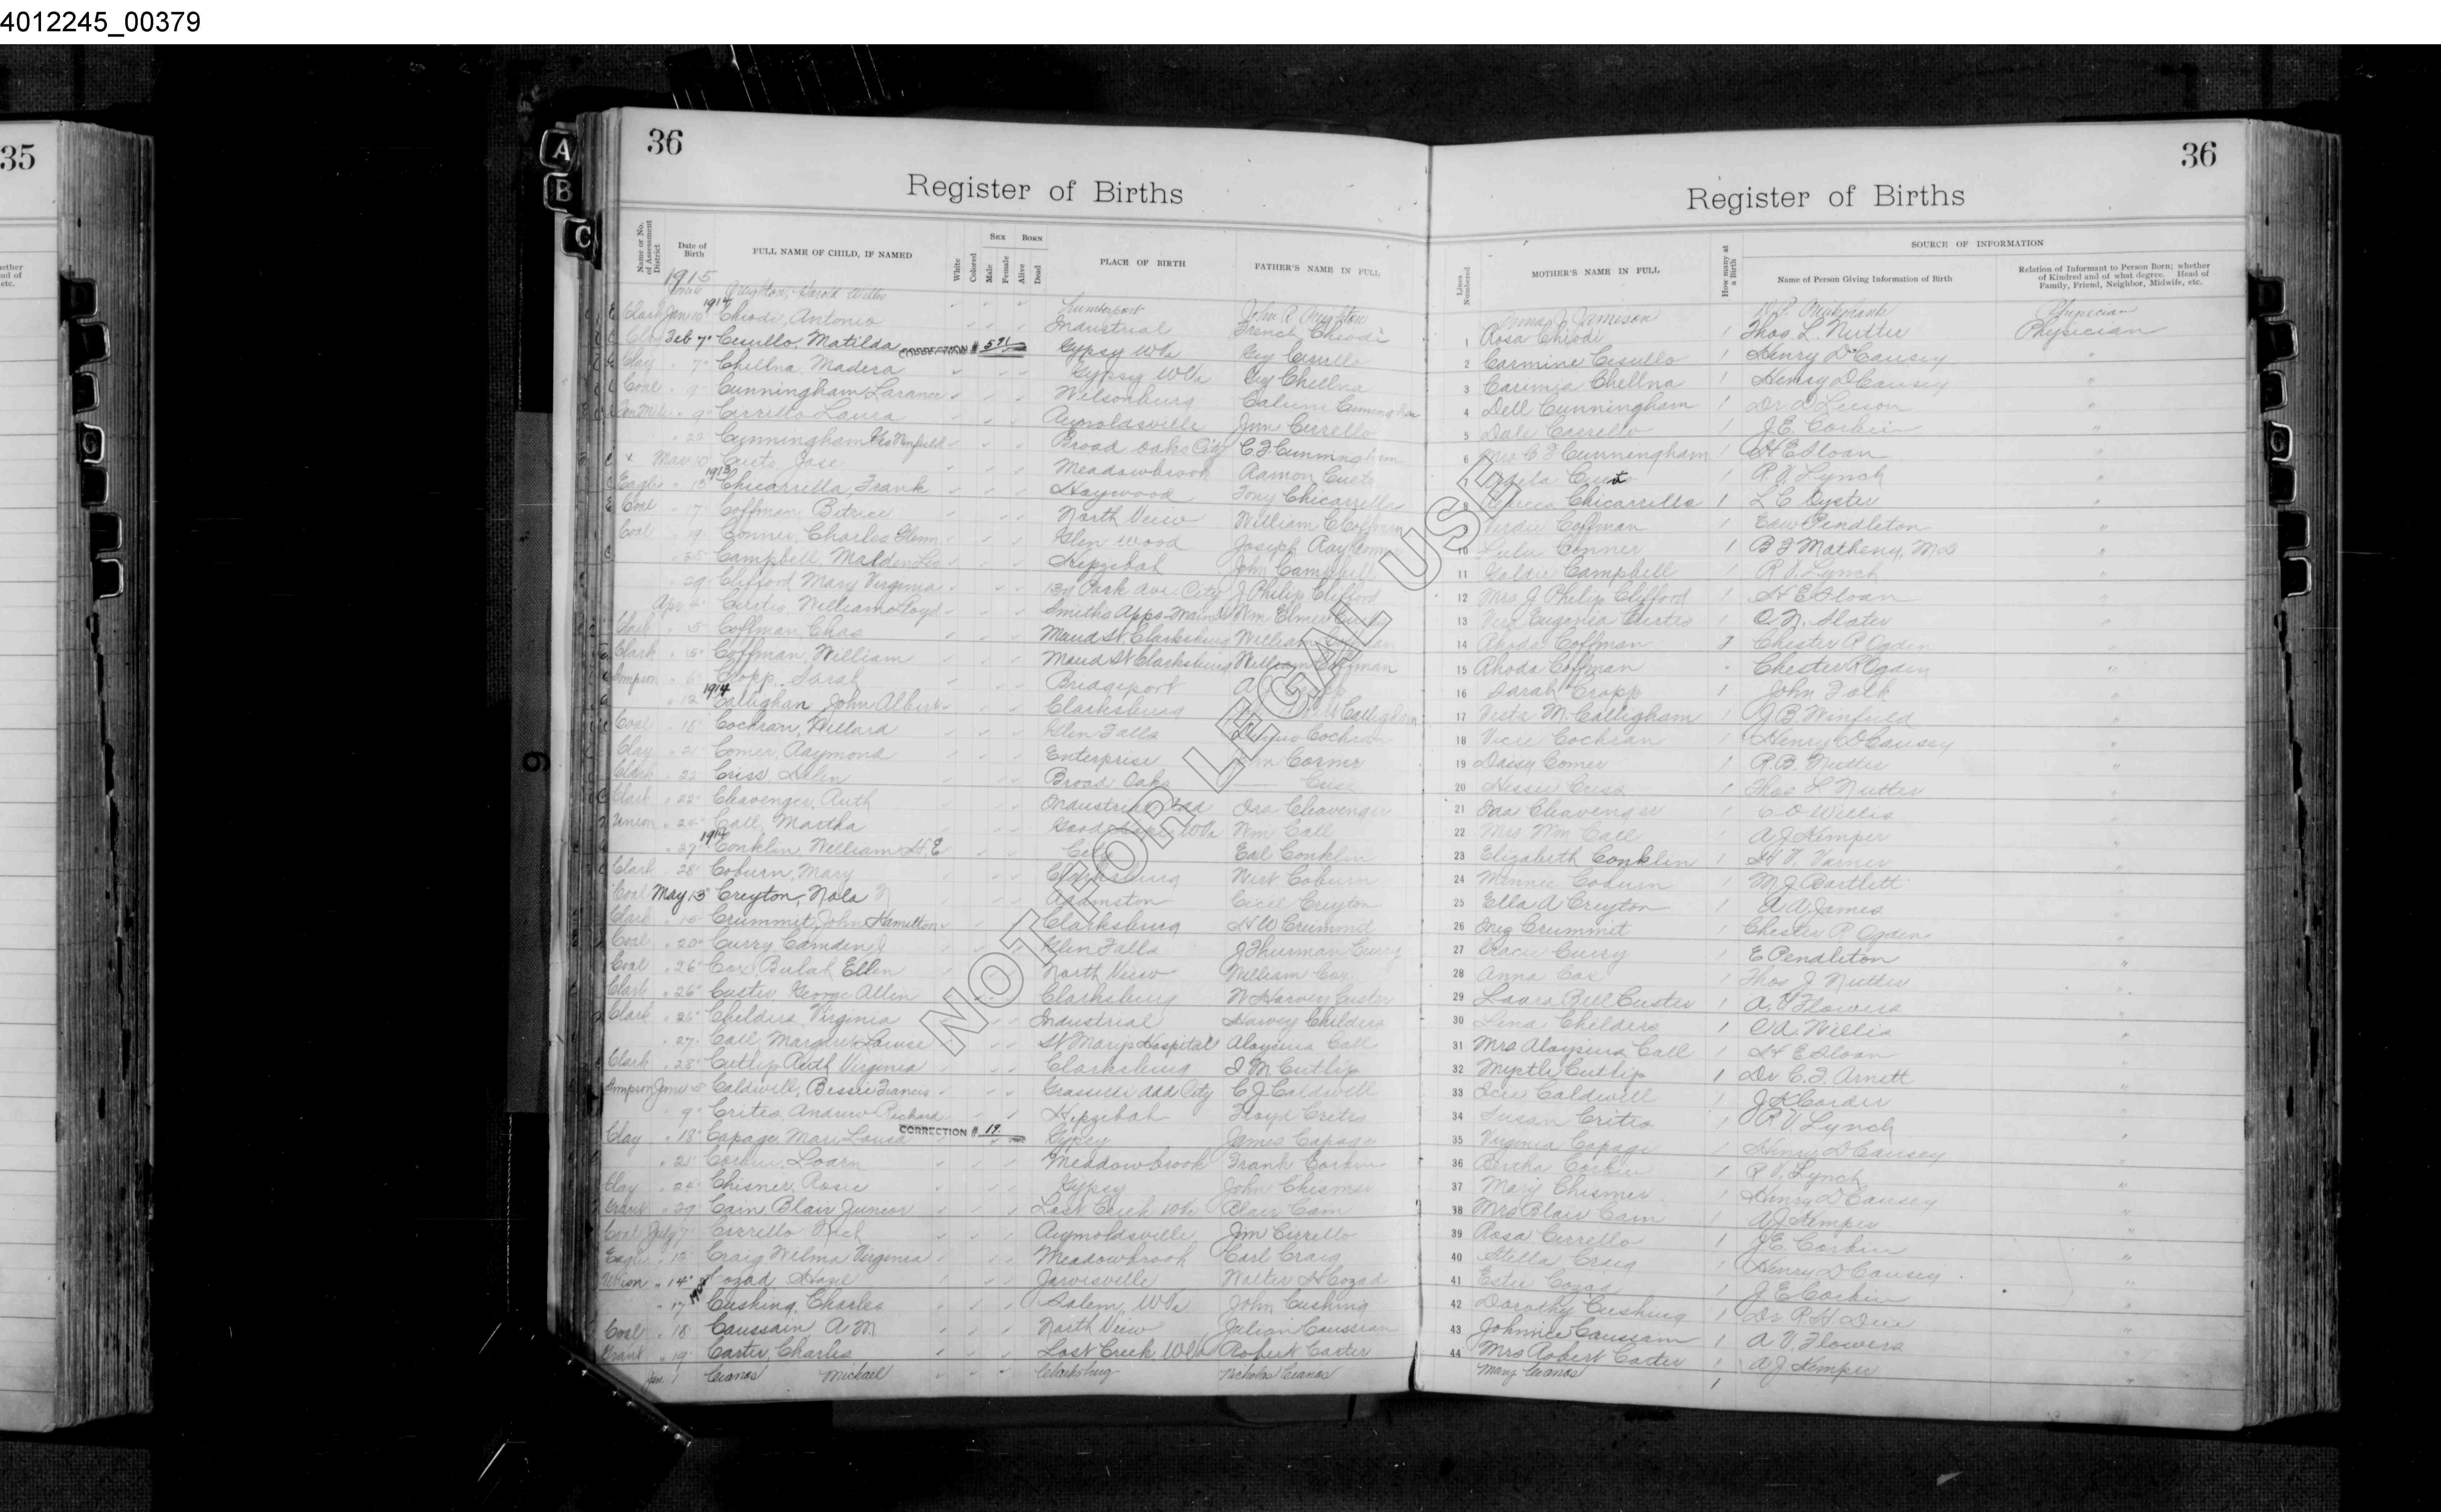 4012245_00379
35
36
36
Register of Births
Register of Births
A
B
C
Name or No. of Assessment District
Date of Birth
FULL NAME OF CHILD, IF NAMED
White
Colored
SEX
Male
Female
BORN
Alive
Dead
PLACE OF BIRTH
FATHER'S NAME IN FULL
Lines Numbered
MOTHER'S NAME IN FULL
How many at a Birth
SOURCE OF INFORMATION
Name of Person Giving Information of Birth
Relation of Informant to Person Born; whether of Kindred and of what degree. Head of Family, Friend, Neighbor, Midwife, etc.
1915
Creighton, Harold Lumberport John R Jameson Physician
Clark Jan 10 1914 Chiodi, Antonio Industrial French Chiodi 1 Rosa Chiodi 1 Thos. L. Nutter Physician
Clay Feb 7 Cesullo, Matilda CORRECTION # 591 Gypsy WVa 2 Carmine Cesullo 1 Henry D Causey "
Clay " 7 Chellna, Madera Gypsy WVa Chellna 3 Carimia Chellna 1 Henry D Causey "
Coal " 9 Cunningham, Larance Wilsonburg Calvin Cunningham 4 Dell Cunningham 1 Dr Leeson "
Ten Mile " 9 Cirrello Laura Reynoldsville Jim Cirrello 5 1 J.E. Corbin "
" 22 Cunningham Broad Oaks City C F Cunningham 6 Mrs C F Cunningham 1 H E Sloan "
Mar 10 Cueto, Jose Meadowbrook Ramon Cueto 7 Cueto 1 R. V. Lynch "
Eagle " 15 1913 Chicarrella, Frank Haywood Tony Chicarrella 8 Chicarrella 1 L C Oyster "
Coal " 17 Coffman, Betrice North View William C Coffman Verdie Coffman 1 Edw Pendleton "
Coal " 19 Conner, Charles Glenn Glen Wood Joseph Ray Conner 10 Lula Conner 1 B F Matheny, MD "
" 25 Campbell Malden Leo Hepzibah John Campbell 11 Goldie Campbell 1 R V. Lynch "
" 29 Clifford Mary Virginia Park Ave. City J Philip Clifford 12 Mrs J Philip Clifford 1 H E Sloan "
Apr 4 Curtis, William Lloyd Smiths Apps. Main St Wm Elmer Curtis 13 Eugenia Curtis 1 C. N. Slater "
Clark " 5 Coffman, Chas Maud St. Clarksburg William Coffman 14 Rhoda Coffman 2 Chester R Ogden "
Clark " 5 Coffman, William Maud St Clarksburg William Coffman 15 Rhoda Coffman Chester R Ogden "
Simpson " 6 Cropp, Sarah Bridgeport 16 Sarah Cropp 1 John Folk "
" 12 1914 Calligham, John Albert Clarksburg Calligham 17 Vesta M. Calligham 1 J B Winfield "
Coal " 18 Cochran, Willard Glen Falls Cochran 18 Cochran 1 Henry D Causey "
Clay " 21 Comer, Raymond Enterprise 19 Daisy Comer 1 R.B. Nutter "
Clark " 22 Criss, Broad Oaks Criss 20 Hessie Criss 1 Thos L Nutter "
Clark " 22 Cleavenger, Ruth Industrial Add Ora Cleavenger 21 Cleavenger 1 C O Willis "
Union " 24 Call, Martha Good Hope WVa Wm Call 22 Mrs Wm Call A J Kemper "
" 27 Conklin, William H. E City Earl Conklin 23 Elizabeth Conklin 1 H V. Varner "
Clark " 28 Coburn, Mary Clarksburg Coburn 24 Minnie Coburn 1 M J Bartlett "
Coal May 13 Creyton, Nola Adamston Cecil Creyton 25 Ella A Creyton 1 A A James "
Clark Crummit, John Hamilton Clarksburg H W Crummit 26 Crummit 1 Chester R Ogden "
Coal " 20 Curry, Camden J Glen Falls J Thurman Curry 27 Gracie Curry 1 E Pendleton "
Coal " 26 Cox, Bulah Ellen North View William Cox 28 Anna Cox 1 Nutter "
Clark " 26 Custer, George Allen Clarksburg W Harvey Custer 29 Laura Bell Custer 1 A. V Flowers "
Clark " 26 Childers, Virginia Industrial Harvey Childers 30 Lena Childers 1 Willis "
" 27 Call, Margaret Louise St Marys Hospital Aloysius Call 31 Mrs Aloysius Call 1 H E Sloan "
Clark " 28 Cutlip, Ruth Virginia Clarksburg Cutlip 32 Myrtle Cutlip 1 Dr C. F. Arnett "
Simpson June 8 Caldwell, Bessie Francis Grasselli Add City C J Caldwell 33 Caldwell 1 J K Corder "
" 9 Crites Andrew Richard Hepzibah Floyd Crites 34 Susan Crites 1 R V Lynch "
Clay " 18 Capage, Mari Louisa CORRECTION # 19 Gypsy James Capage 35 Virginia Capage 1 Henry D Causey "
" 21 Corbin, Loarn Meadowbrook Frank Corbin 36 Bertha Corbin 1 R V. Lynch "
Clay " 24 Chisner, Rosie Gypsy John Chisner 37 Mary Chisner 1 Henry D Causey "
Grant " 29 Cam Blair Junior Lost Creek WVa Blair Cam 38 Mrs Blair Cam 1 A J Kemper "
Coal July 7 Cirrello Rich Reynoldsville Jim Cirrello 39 Rosa Cirrello 1 J E Corbin "
Eagle " 13 Craig Wilma Virginia Meadowbrook Carl Craig 40 Stella Craig 1 Henry D Causey "
Union " 14 Cozad Hazel Jarvisville Walter H Cozad 41 Estie Cozad J E Corbin "
" 17 Cushing, Charles Salem, WVa John Cushing 42 Dorothy Cushing 1 Dr R. H. "
Coal " 18 Caussain A M North View Julian Caussain 43 Johnnie Caussain 1 A V. Flowers "
Grant " 19 Carter, Charles Lost Creek WVa Robert Carter 44 Mrs Robert Carter 1 A J Kemper "
Jan. 1 Cianos Michael Clarksburg Nicholas Cianos Mary Cianos 1
NOT FOR LEGAL USE